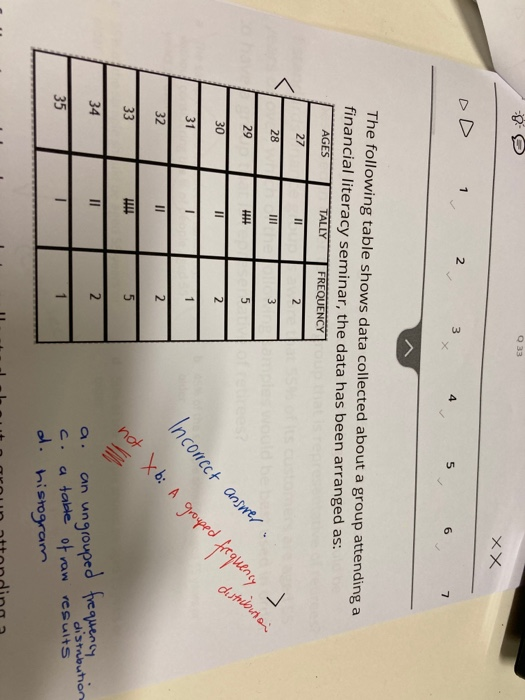 Q 33
X X
1 2 3 4 5 6 7
The following table shows data collected about a group attending a
financial literacy seminar, the data has been arranged as:
AGES TALLY FREQUENCY
27 II 2
28 III 3
29 5
30 II 2
31 I 1
32 II 2
33 5
34 II 2
35 I 1
Incorrect answer.
not X b: A grouped frequency
distribution
a. an ungrouped frequency
distribution
c. a table of raw results
d. histogram